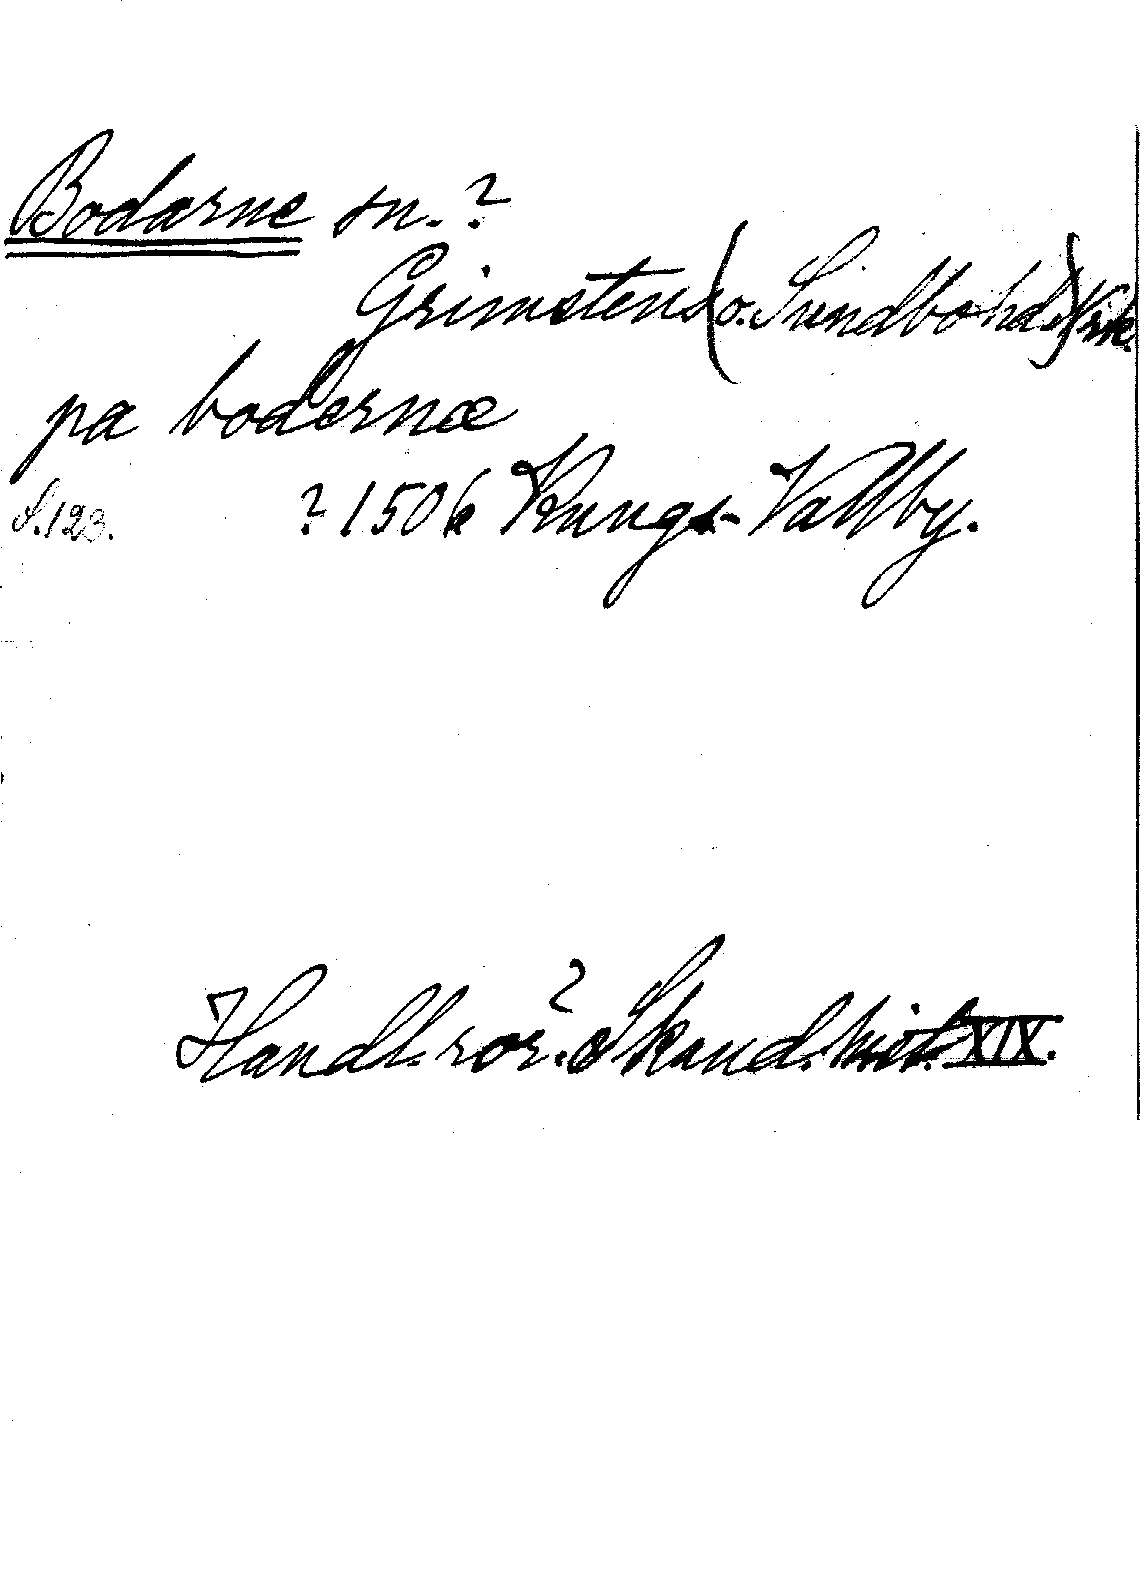 Bodarne sn. ?
Grimstens (o. Sundbo hd.) Nrk.
pa bodernæ
S. 123. ? 1506 Kungs-Vallby.
Handl. rör. ? Skand. hist. XIX.